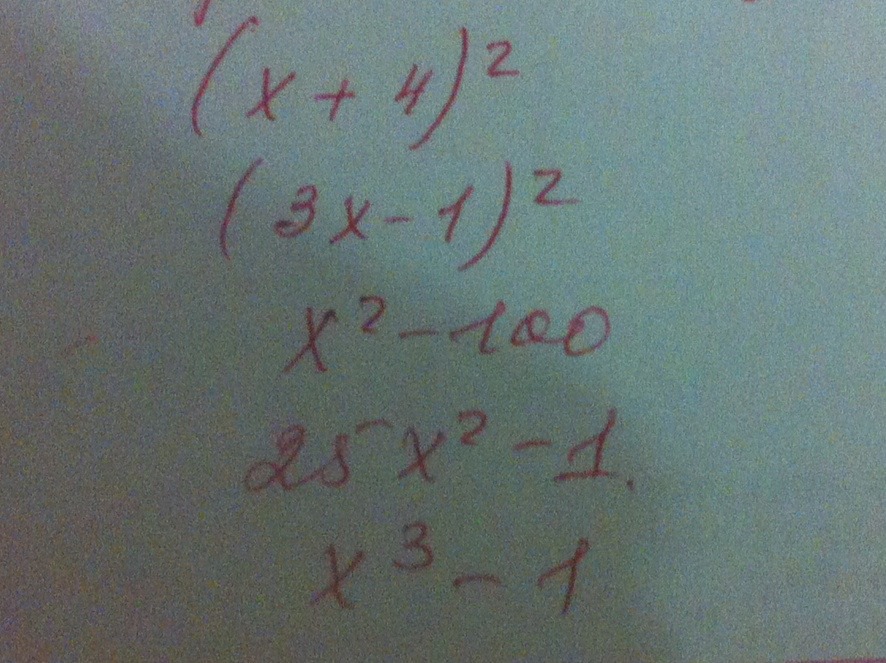 (x + 4)²
(3x - 1)²
x² - 100
25x² - 1.
x³ - 1